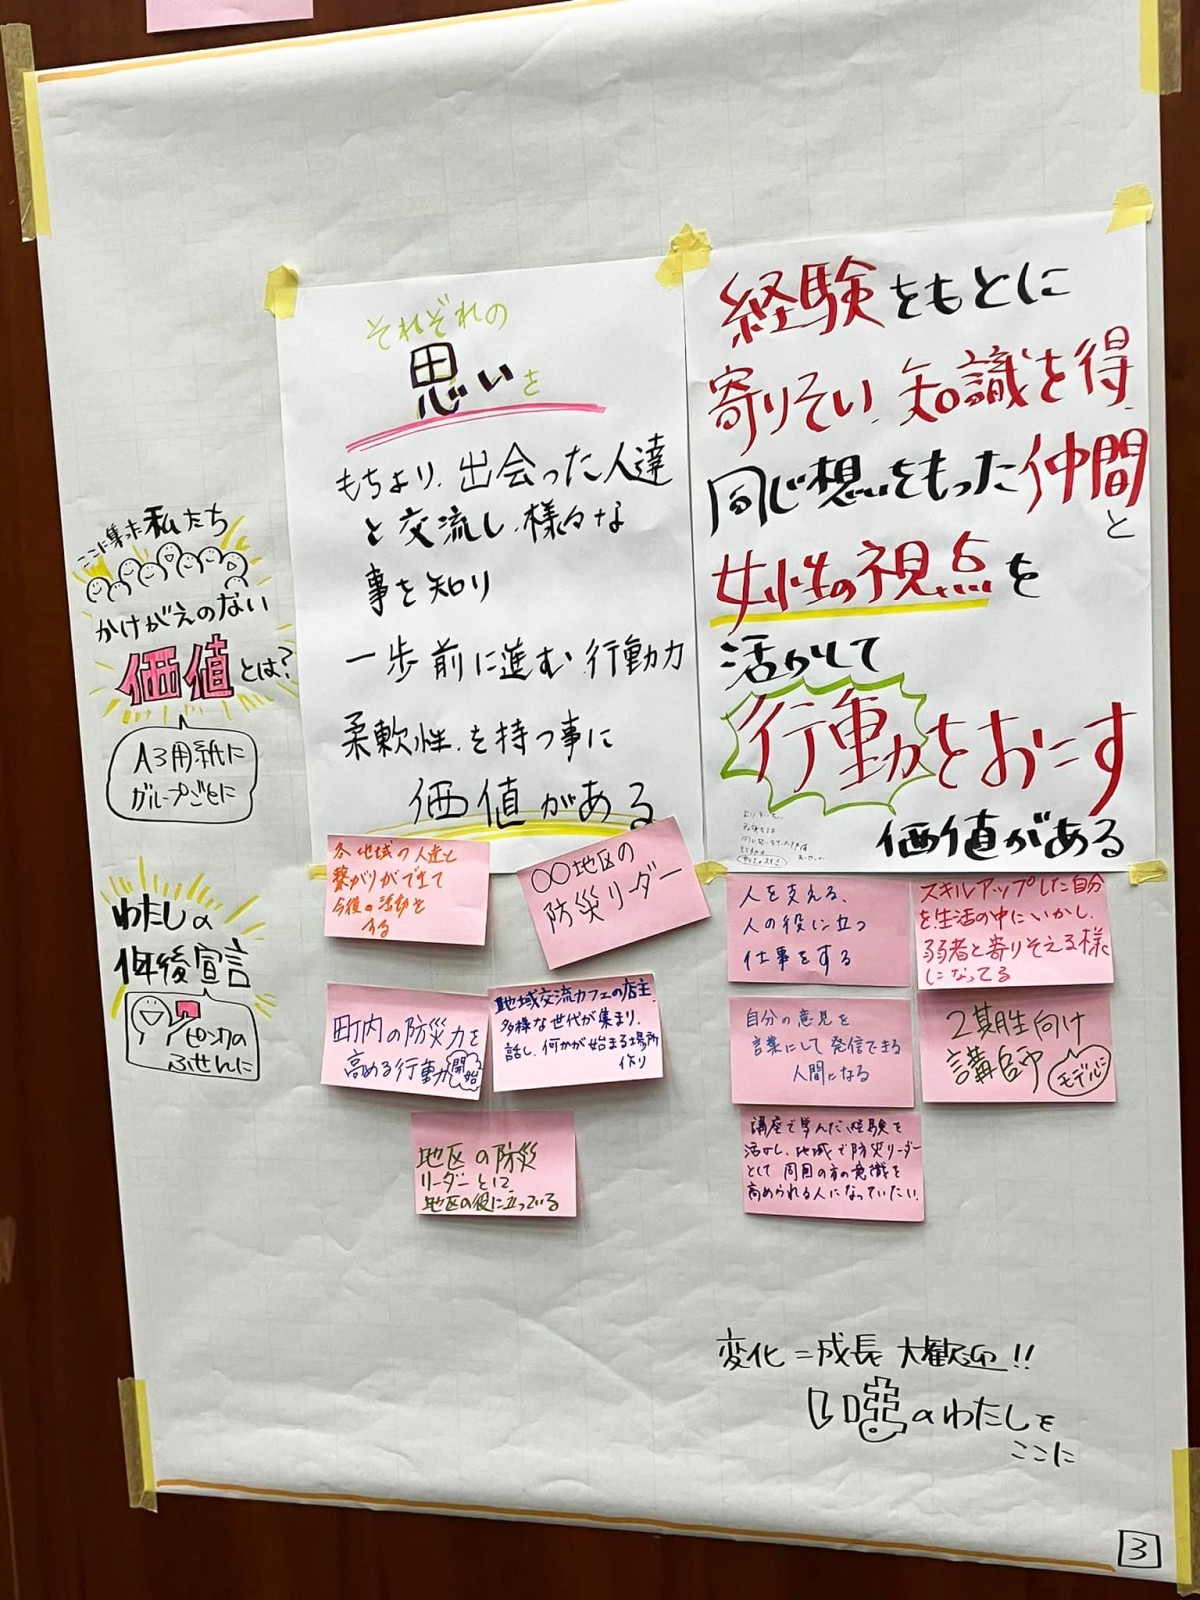 ここに集った私たち
かけがえのない
価値とは?
A3用紙に
グループごとに
わたしの
1年後宣言
ピンクの
ふせんに
それぞれの
思いを
もちより、出会った人達
と交流し、様々な
事を知り
一歩前に進む行動力
柔軟性を持つ事に
価値がある
経験をもとに
寄りそい、知識を得、
同じ想いをもった仲間
と
女性の視点を
活かして
行動をおこす
価値がある
各地域の人達と
繋がりができて
今後の活動を
する
○○地区の
防災リーダー
町内の防災力を
高める行動開始
地域交流カフェの店主。
多様な世代が集まり、
話し、何かが始まる場所
作り
地区の防災
リーダーとして
地区の役に立っている
人を支える、
人の役に立つ
仕事をする
スキルアップした自分
を生活の中にいかし、
弱者と寄りそえる様
になってる
自分の意見を
言葉にして発信できる
人間になる
2期生向け
講師
モデルに
講座で学んだ経験を
活かし、地域で防災リーダー
として周囲の方の意識を
高められる人になっていたい。
変化=成長 大歓迎!!
のわたしを
ここに
3